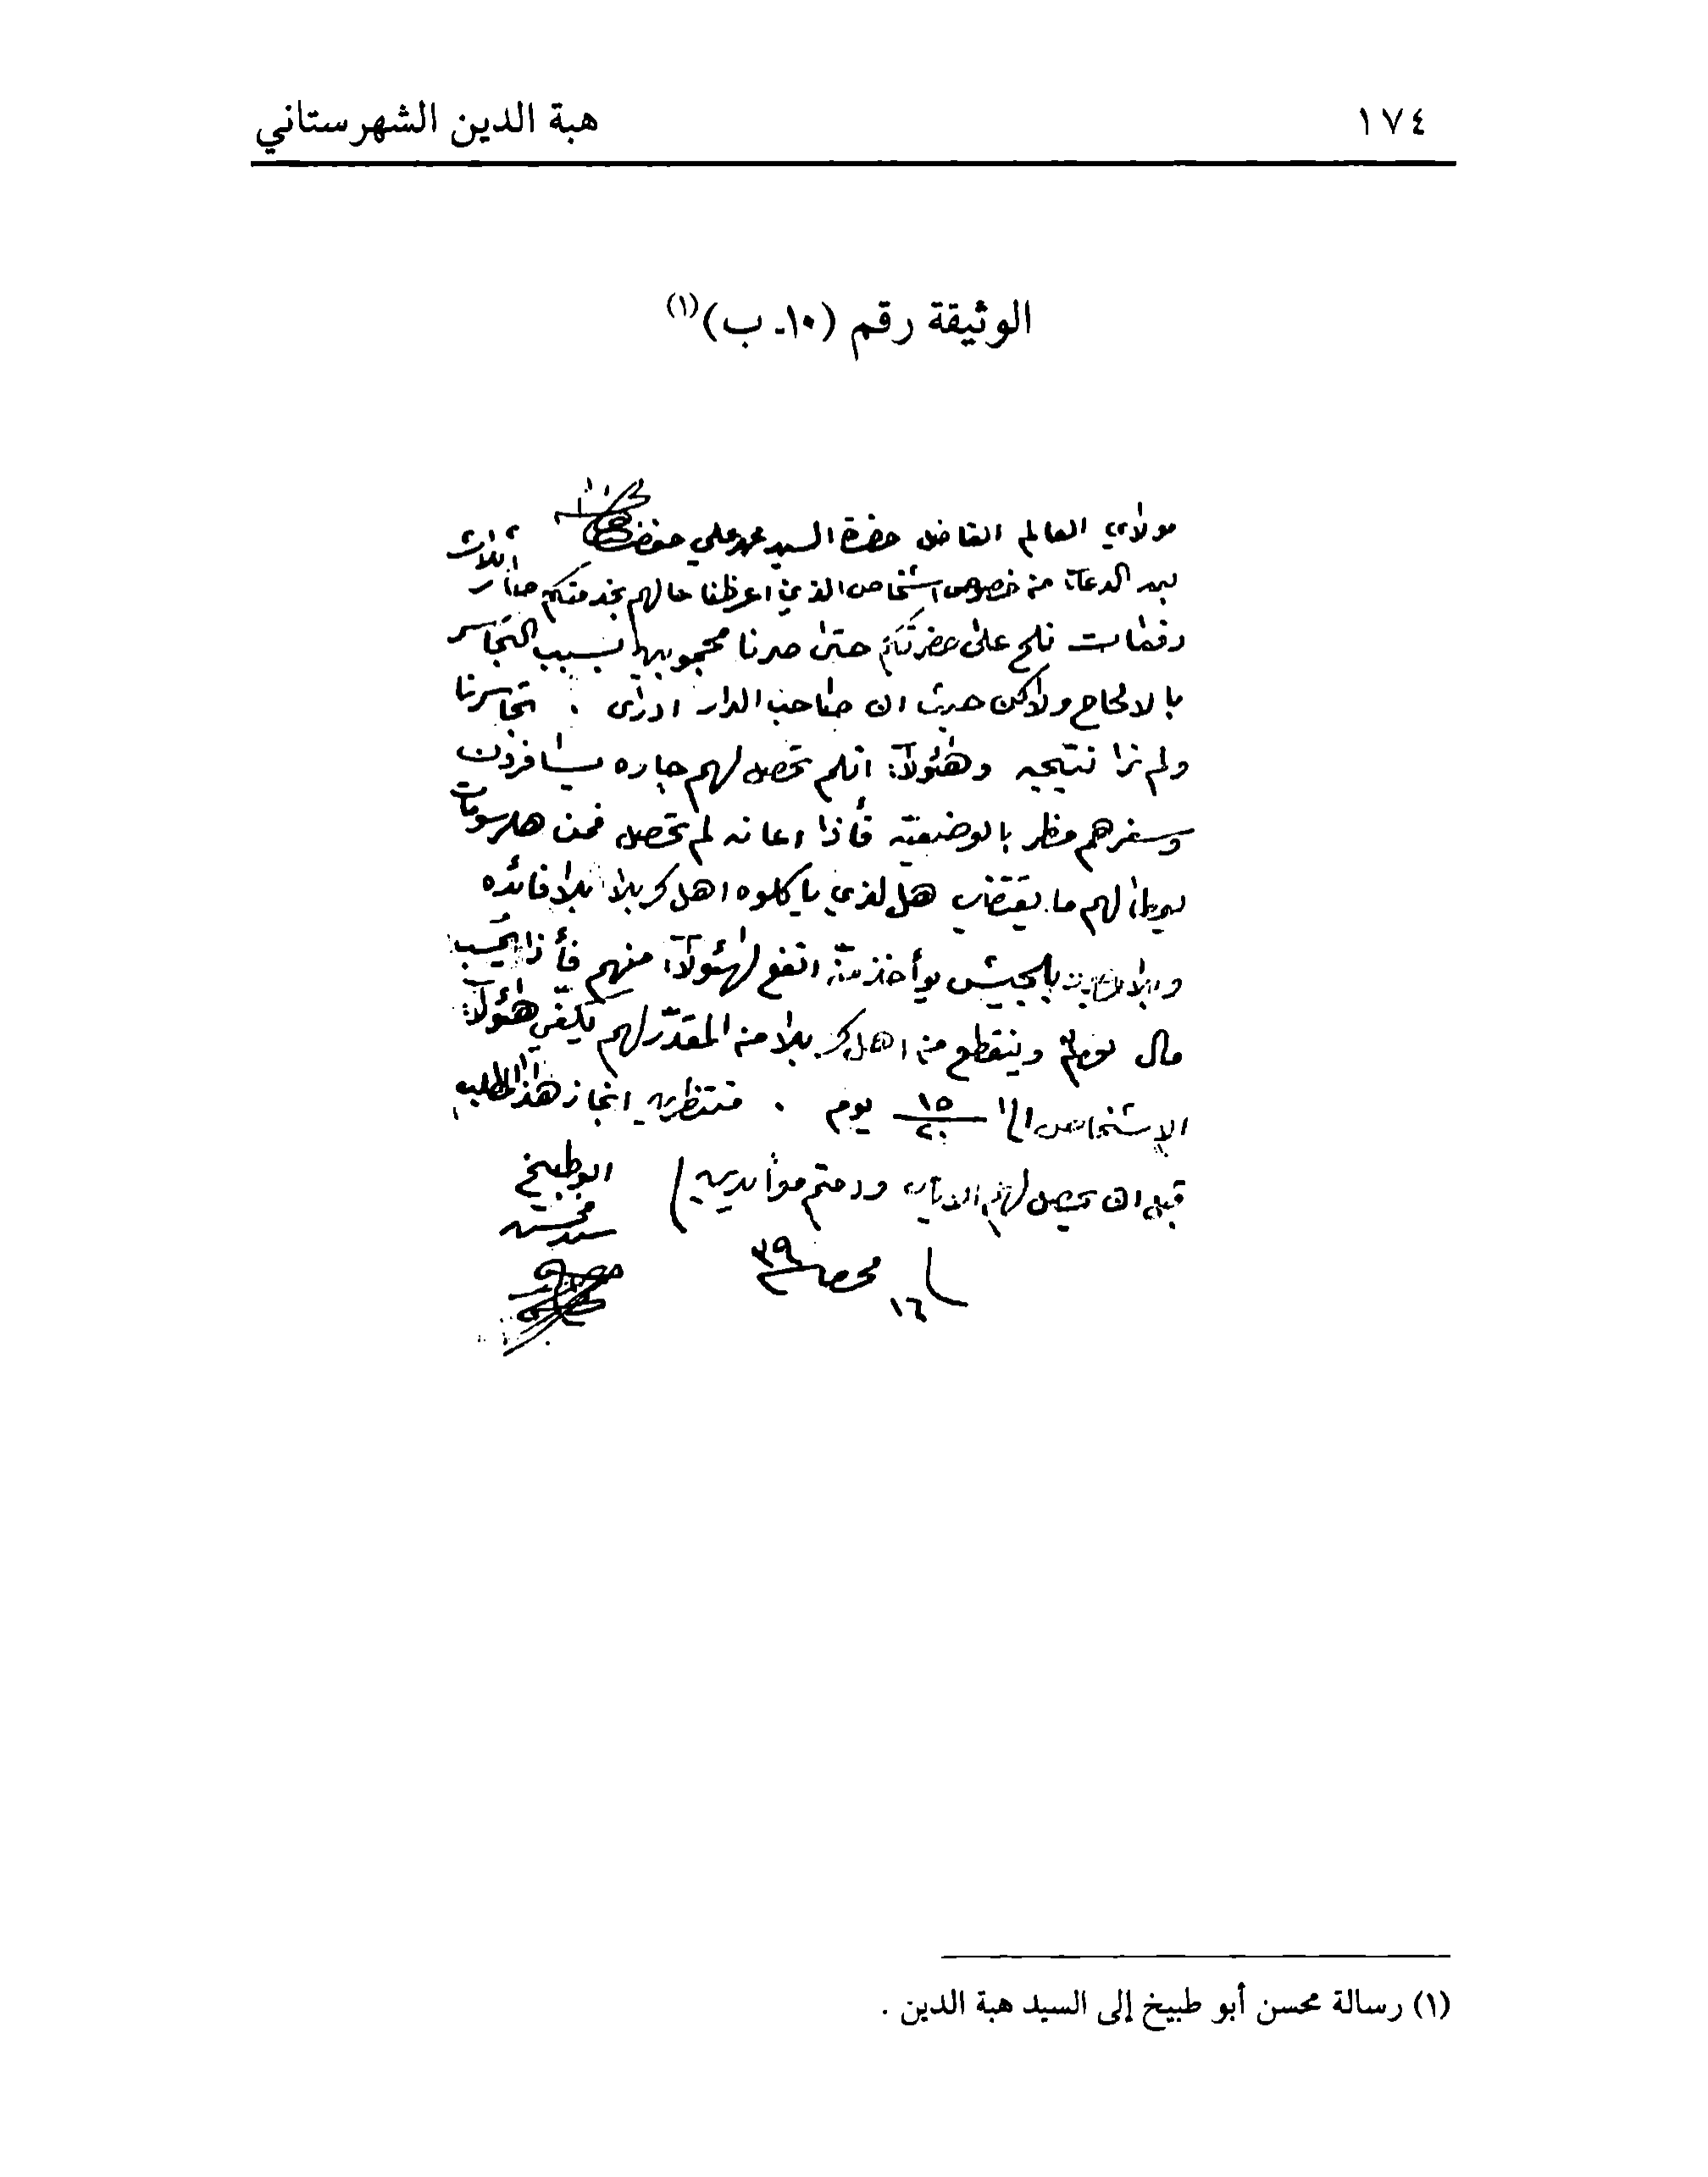 ١٧٤
هبة الدين الشهرستاني
الوثيقة رقم (١٠ـ ب)(١)
مولاي العالم الفاضل حضرة السيد محمد علي
بعد الدعاء من خصوص اشخاص الذي اعرظنا حالهم بخدمتكم صار اثلاث
دفعات نلح على حضرتكم حتى صرنا محجوبين بسبب التجاسر
بالالحاح ولاكن حيث ان صاحب الدار ادرى . تجاسرنا
ولم نرا نتيجه وهئولاء انلم تحصل لهم چاره يسافرون
وسفرهم مظر بالوضعيه فأذا اعانه لم تحصل فمن هلرسومات
يعطا لهم ما يقتضي هل لذي ياكلوه اهل كربلا بلا فائده
بالجيش يوأخذ منه انفع لهئولاء منهم فأذا
مال يوم وينقطع من اهل كربلا من المقدر لهم يكفي هئولاء
الاشخاص الى ١٥ ٢٠ يوم . منتظرين انجاز هذا المطلب
قبل ان يحصل لهم ودمتم موأيدين
ابوطبيخ
سيد محسن
١٦ محرم ٣٩
(١) رسالة محسن أبو طبيخ إلى السيد هبة الدين .